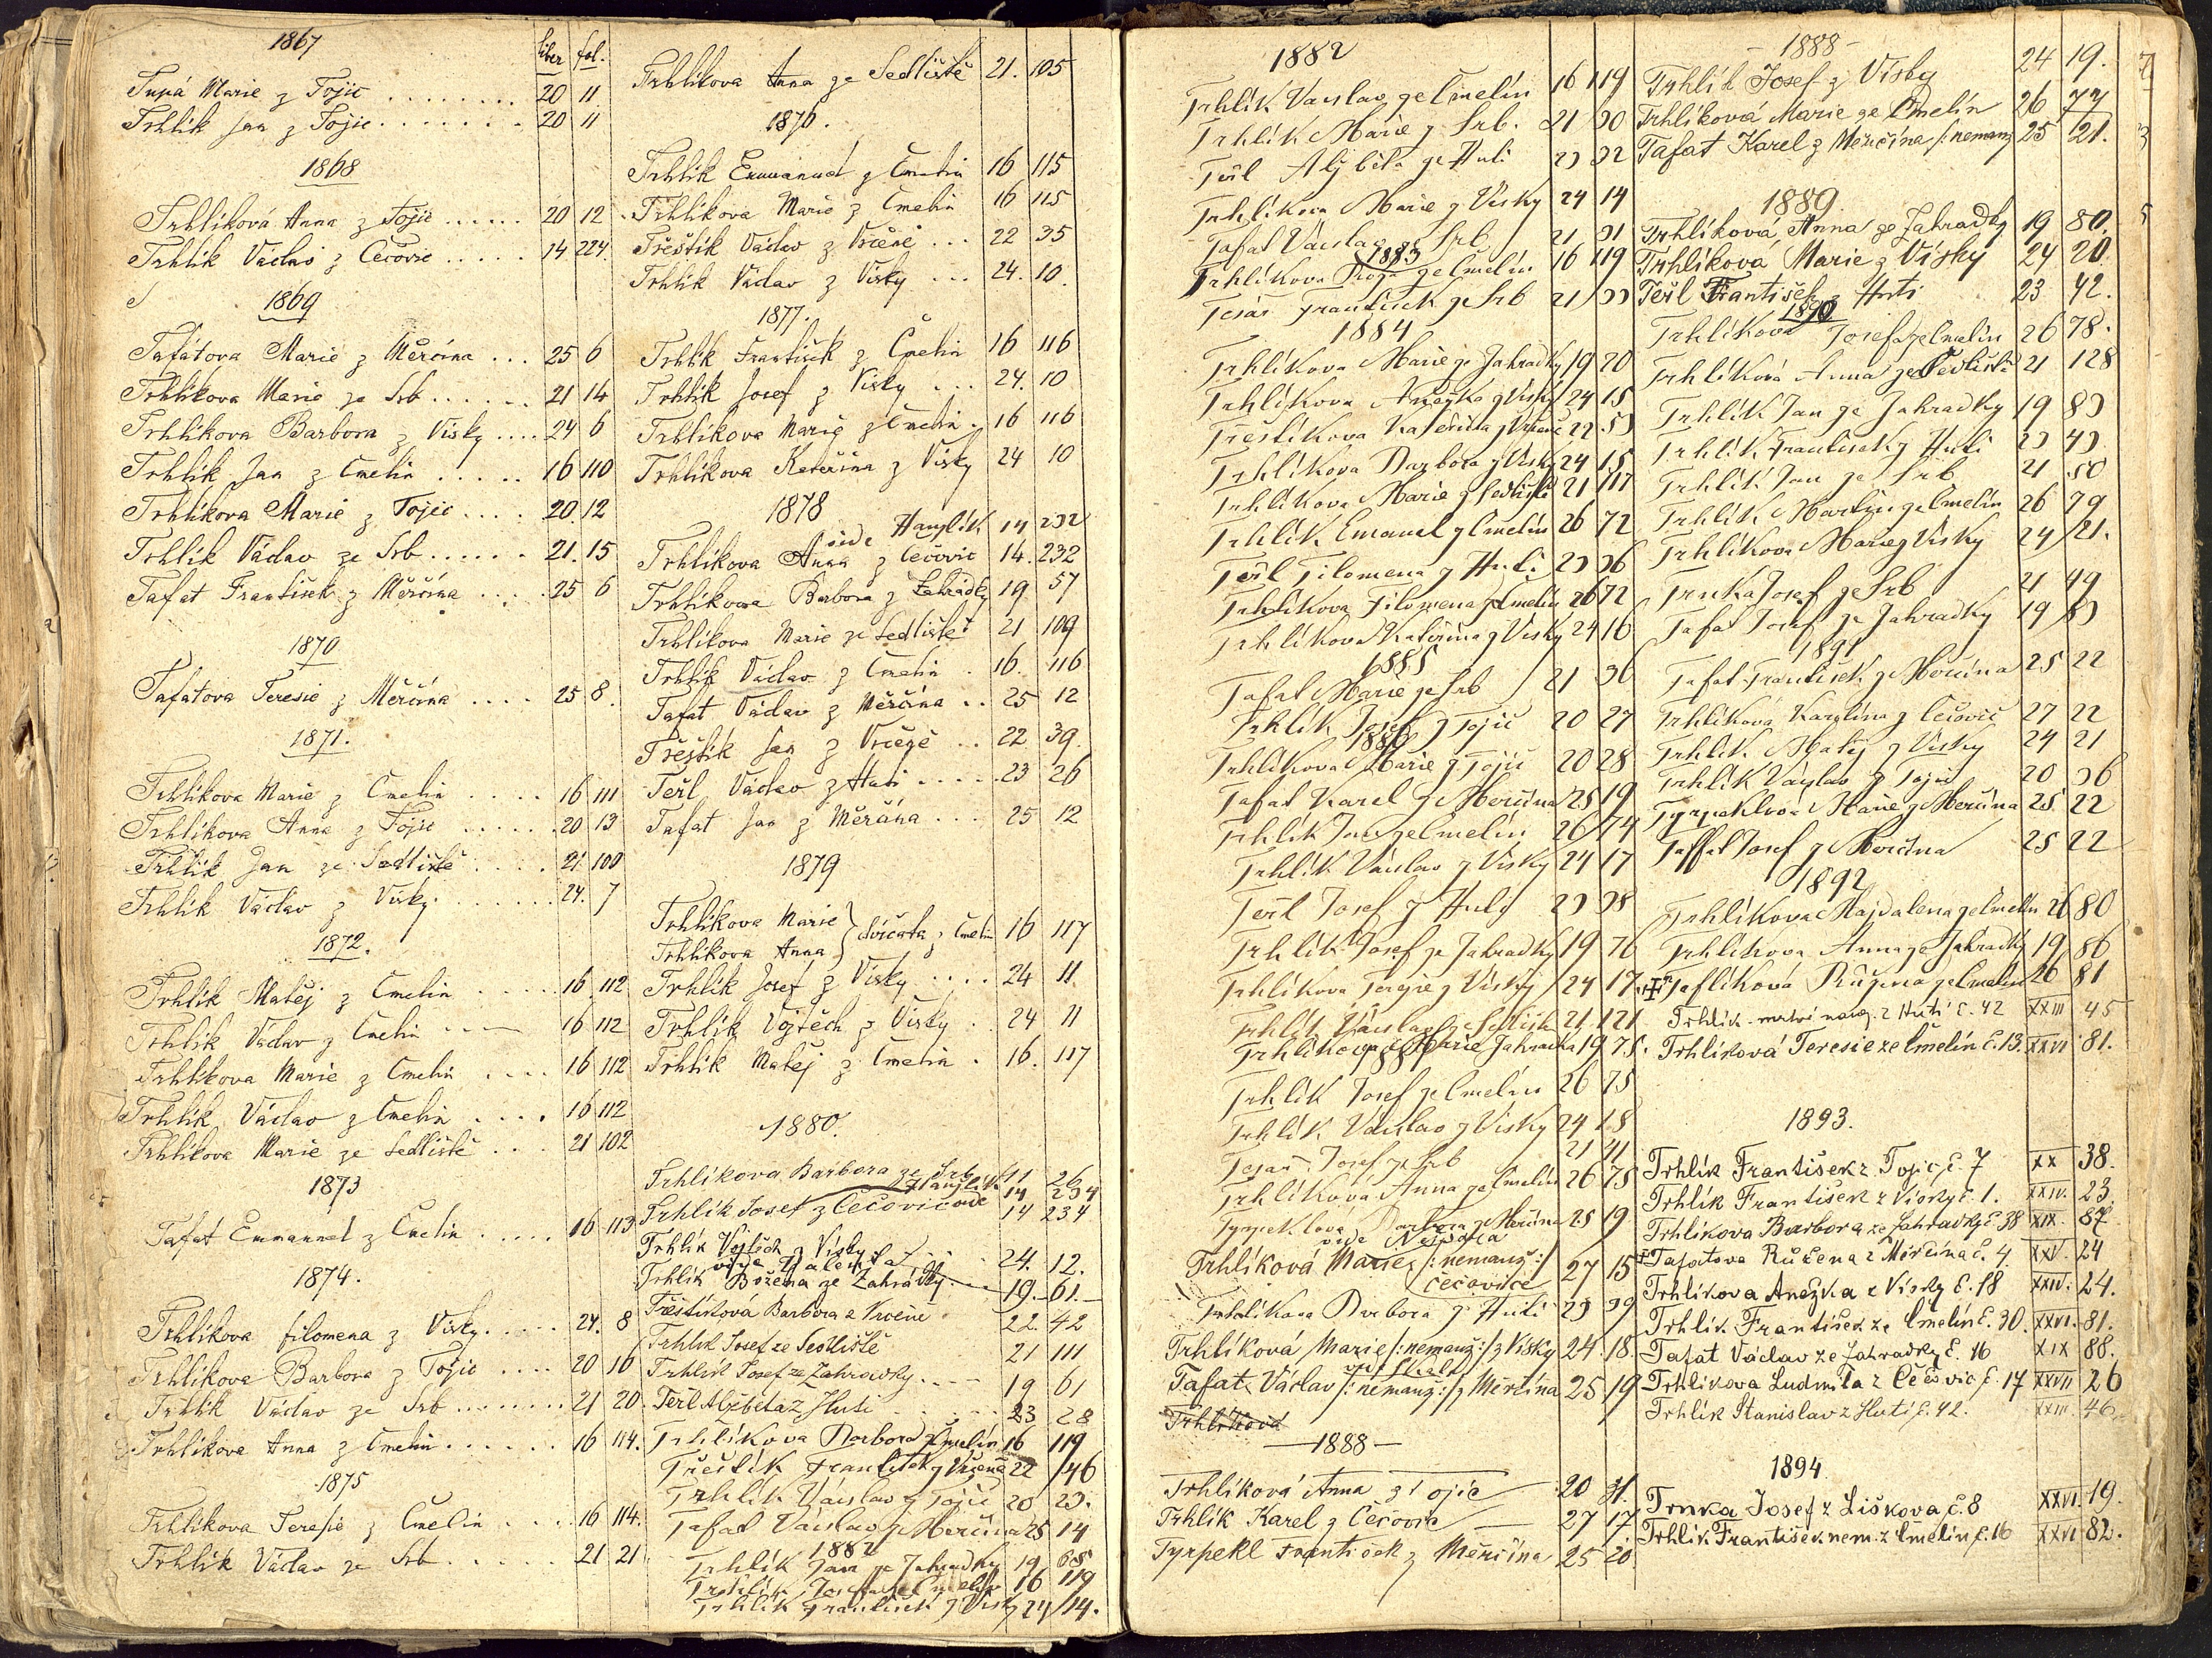 1867
liber fol.
Tupá Marie z Tojic ........ 20 11
Trhlík Jan z Tojic ........ 20 11
1868
Trhlíková Anna z Tojic ...... 20 12
Trhlík Václav z Čečovic ..... 14 224.
1869
Tafatova Marie z Měrčína ... 25 6
Trhlíkova Marie ze Srb ...... 21 14
Trhlíkova Barbora z Vísky .... 24 6
Trhlík Jan z Čmelín ..... 16 110
Trhlíkova Marie z Tojic .... 20. 12
Trhlík Václav ze Srb ...... 21. 15
Tafat František z Měrčína .... 25 6
1870
Tafatova Teresie z Měrčína .... 25 8.
1871.
Trhlíkova Marie z Čmelín .... 16 111
Trhlíkova Anna z Tojic ...... 20 13
Trhlík Jan ze Sedliště .... 21. 100
Trhlík Václav z Vísky ....... 24. 7
1872.
Trhlík Matěj z Čmelín ..... 16. 112
Trhlík Václav z Čmelín 16 112
Trhlíkova Marie z Čmelín .... 16 112
Trhlík Václav z Čmelín .... 16 112
Trhlíkova Marie ze Sedliště ... 21 102
1873
Tafat Emmanuel z Čmelín ..... 16 113
1874.
Trhlíkova filomena z Vísky ..... 24. 8
Trhlíkova Barbora z Tojic .... 20 16
Trhlík Václav ze Srb ........ 21 20.
Trhlíkova Anna z Čmelín ...... 16 114.
1875
Trhlíkova Teresie z Čmelín .... 16 114.
Trhlík Václav ze Srb ...... 21 21
Trhlíkova Anna ze Sedliště 21. 105
1876.
Trhlík Emmanuel z Čmelín 16 115
Trhlíkova Marie z Čmelín 16 115
Třeštík Václav z Vrčeně ... 22 35
Trhlík Václav z Vísky ... 24. 10.
1877.
Trhlík František z Čmelín 16 116
Trhlík Josef z Vísky ... 24. 10
Trhlíkova Marie z Čmelín . 16 116
Trhlíkova Kateřina z Vísky 24 10
1878
vide Hanzlík 14 232
Trhlíkova Anna z Čečovic 14. 232
Trhlíkova Barbora z Zahrádky 19 57
Trhlíkova Marie ze Sedliště 21 109
Trhlík Václav z Čmelín . 16. 116
Tafat Václav z Měrčína .. 25 12
Třeštík Jan z Vrčeně .. 22 39.
Terl Václav z Huti ..... 23 26
Tafat Jan z Měrčína ... 25 12
1879
Trhlíkova Marie
Trhlíkova Anna } dvíčata z Čmelín 16 117
Trhlík Josef z Vísky .... 24 11.
Trhlík Vojtěch z Vísky .. 24 11
Trhlík Matěj z Čmelín . 16. 117
1880.
Trhlíkova Barbora ze Srb 11 26
Hanzlík 14 234
Trhlík Josef z Čečovic vide 14 234
Trhlík Vojtěch z Vísky 24. 12.
vide Valenta
Trhlík Božena ze Zahrádky 19. 61.
Třeštíková Barbora z Vrčeně 22. 42
Trhlík Josef ze Sedliště 21 111
Trhlík Josef ze Zahrádky .... 19 61
Terl Alžběta z Huti 23 28
Trhlíkova Barbora z Čmelín 16 119
Třeštík František z Vrčeně 22 46
Trhlík Václav z Tojic 20 23.
Tafat Václav z Merčína 25 14
1882
Trhlík Jan ze Zahrádky 19 68
Trhlík Josef ze Čmelín 16 119
Trhlík František z Vísky 24 14.
1882
Trhlík Václav ze Čmelín 16 119
Trhlík Marie z Srb. 21 30
Terl Alžběta ze Huti 23 32
Trhlíkova Marie z Vísky 24 14
Tafat Václav ze Srb 21 31
1883
Trhlíkova Róza ze Čmelín 16 119
Tesář František ze Srb 21 33
1884
Trhlíkova Marie ze Zahrádky 19 20
Trhlíkova Anežka z Vísky 24 15
Třeštíkova Kateřina z Vrčeně 22 53
Trhlíkova Barbora z Vísky 24 15
Trhlíkova Marie z Sedliště 21 117
Trhlík Emanuel z Čmelín 26 72
Terl Filomena z Huti 23 36
Trhlíkova Filomena z Čmelín 26 72
Trhlíkova Kateřina z Vísky 24 16
1885
Tafat Marie ze Srb 21 36
Trhlík Josef z Tojic 20 27
1886
Trhlíkova Marie z Tojic 20 28
Tafat Karel z Merčína 25 19
Trhlík Jan ze Čmelín 26 74
Trhlík Václav z Vísky 24 17
Terl Josef z Huti 23 38
Trhlík Josef ze Zahrádky 19 76
Trhlíkova Terezie z Vísky 24 17
Trhlík Václav ze Sedliště 21 121
Trhlíkova Marie Zahrádka 19 75.
1887
Trhlík Josef ze Čmelín 26 75
Trhlík Václav z Vísky 24 18
Tesař Josef ze Srb 21 41
Trhlíková Anna ze Čmelín 26 75
Tyrpeklová Barbora z Merčína 25 19
vide Nespota
Trhlíková Marie /:nemanž:/ Čečovice 27 15
Trhlíkova Barbora z Huti 23 39
Trhlíková Marie /:nemanž:/ z Vísky 24. 18.
vide Skala
Tafat Václav /:nemanž:/ z Měrčína 25 19
Trhlíková
—1888—
Trhlíková Anna z Tojic 20 31.
Trhlík Karel z Čečovic 27 17.
Tyrpekl František z Měrčína 25 20.
- 1888 -
Trhlík Josef z Vísky 24 19.
Trhlíková Marie ze Čmelín 26 77
Tafat Karel z Měrčína /:nemanž 25 21.
1889
Trhlíková Anna ze Zahrádky 19 80.
Trhlíková Marie z Vísky 24 20.
Terl František z Huti 23 42.
1890
Trhlíkova Josefa ze Čmelín 26 78.
Trhlíková Anna ze Sedliště 21 128
Trhlík Jan ze Zahrádky 19 83
Trhlík František z Huti 23 43
Trhlík Jan ze Srb 21 50
Trhlík Martin ze Čmelín 26 79
Trhlíkova Marie z Vísky 24 21.
Trnka Josef ze Srb 21 49
Tafat Josef ze Zahrádky 19 83
1891
Tafat František z Merčína 25 22
Trhlíková Karolína z Čečovic 27 22
Trhlík Matěj z Vísky 24 21
Trhlík Václav z Tojic 20 36
Tyrpeklová Marie z Merčína 25 22
Taffat Josef z Merčína 25 22
1892
Trhlíkova Majdalena ze Čmelín 26 80
Trhlíkova Anna ze Zahrádky 19 86
Taflíková Růžena ze Čmelín 26 81
Trhlík mrtvě naroz. z Huti č. 42 XXIII 45
Trhlíková Teresie ze Čmelín č. 13. XXVI 81.
1893.
Trhlík František z Tojic č. 7 XX 38.
Trhlík František z Vísky č. 1. XXIV. 23.
Trhlíkova Barbora ze Zahrádky č. 38 XIX. 87
Tafatova Růžena z Měrčína č. 4. XXV. 24
Trhlíkova Anežka z Vísky č. 18 XXIV. 24.
Trhlík František ze Čmelín č. 30. XXVI. 81.
Tafat Václav ze Zahrádky č. 16 XIX 88.
Trhlíkova Ludmila z Čečovic č. 17 XXVII 26
Trhlík Stanislav z Huti č. 42. XXIII. 46.
1894.
Trnka Josef z Liškova č. 8 XXVI. 19.
Trhlík František nem. z Čmelín č. 16 XXVI 82.